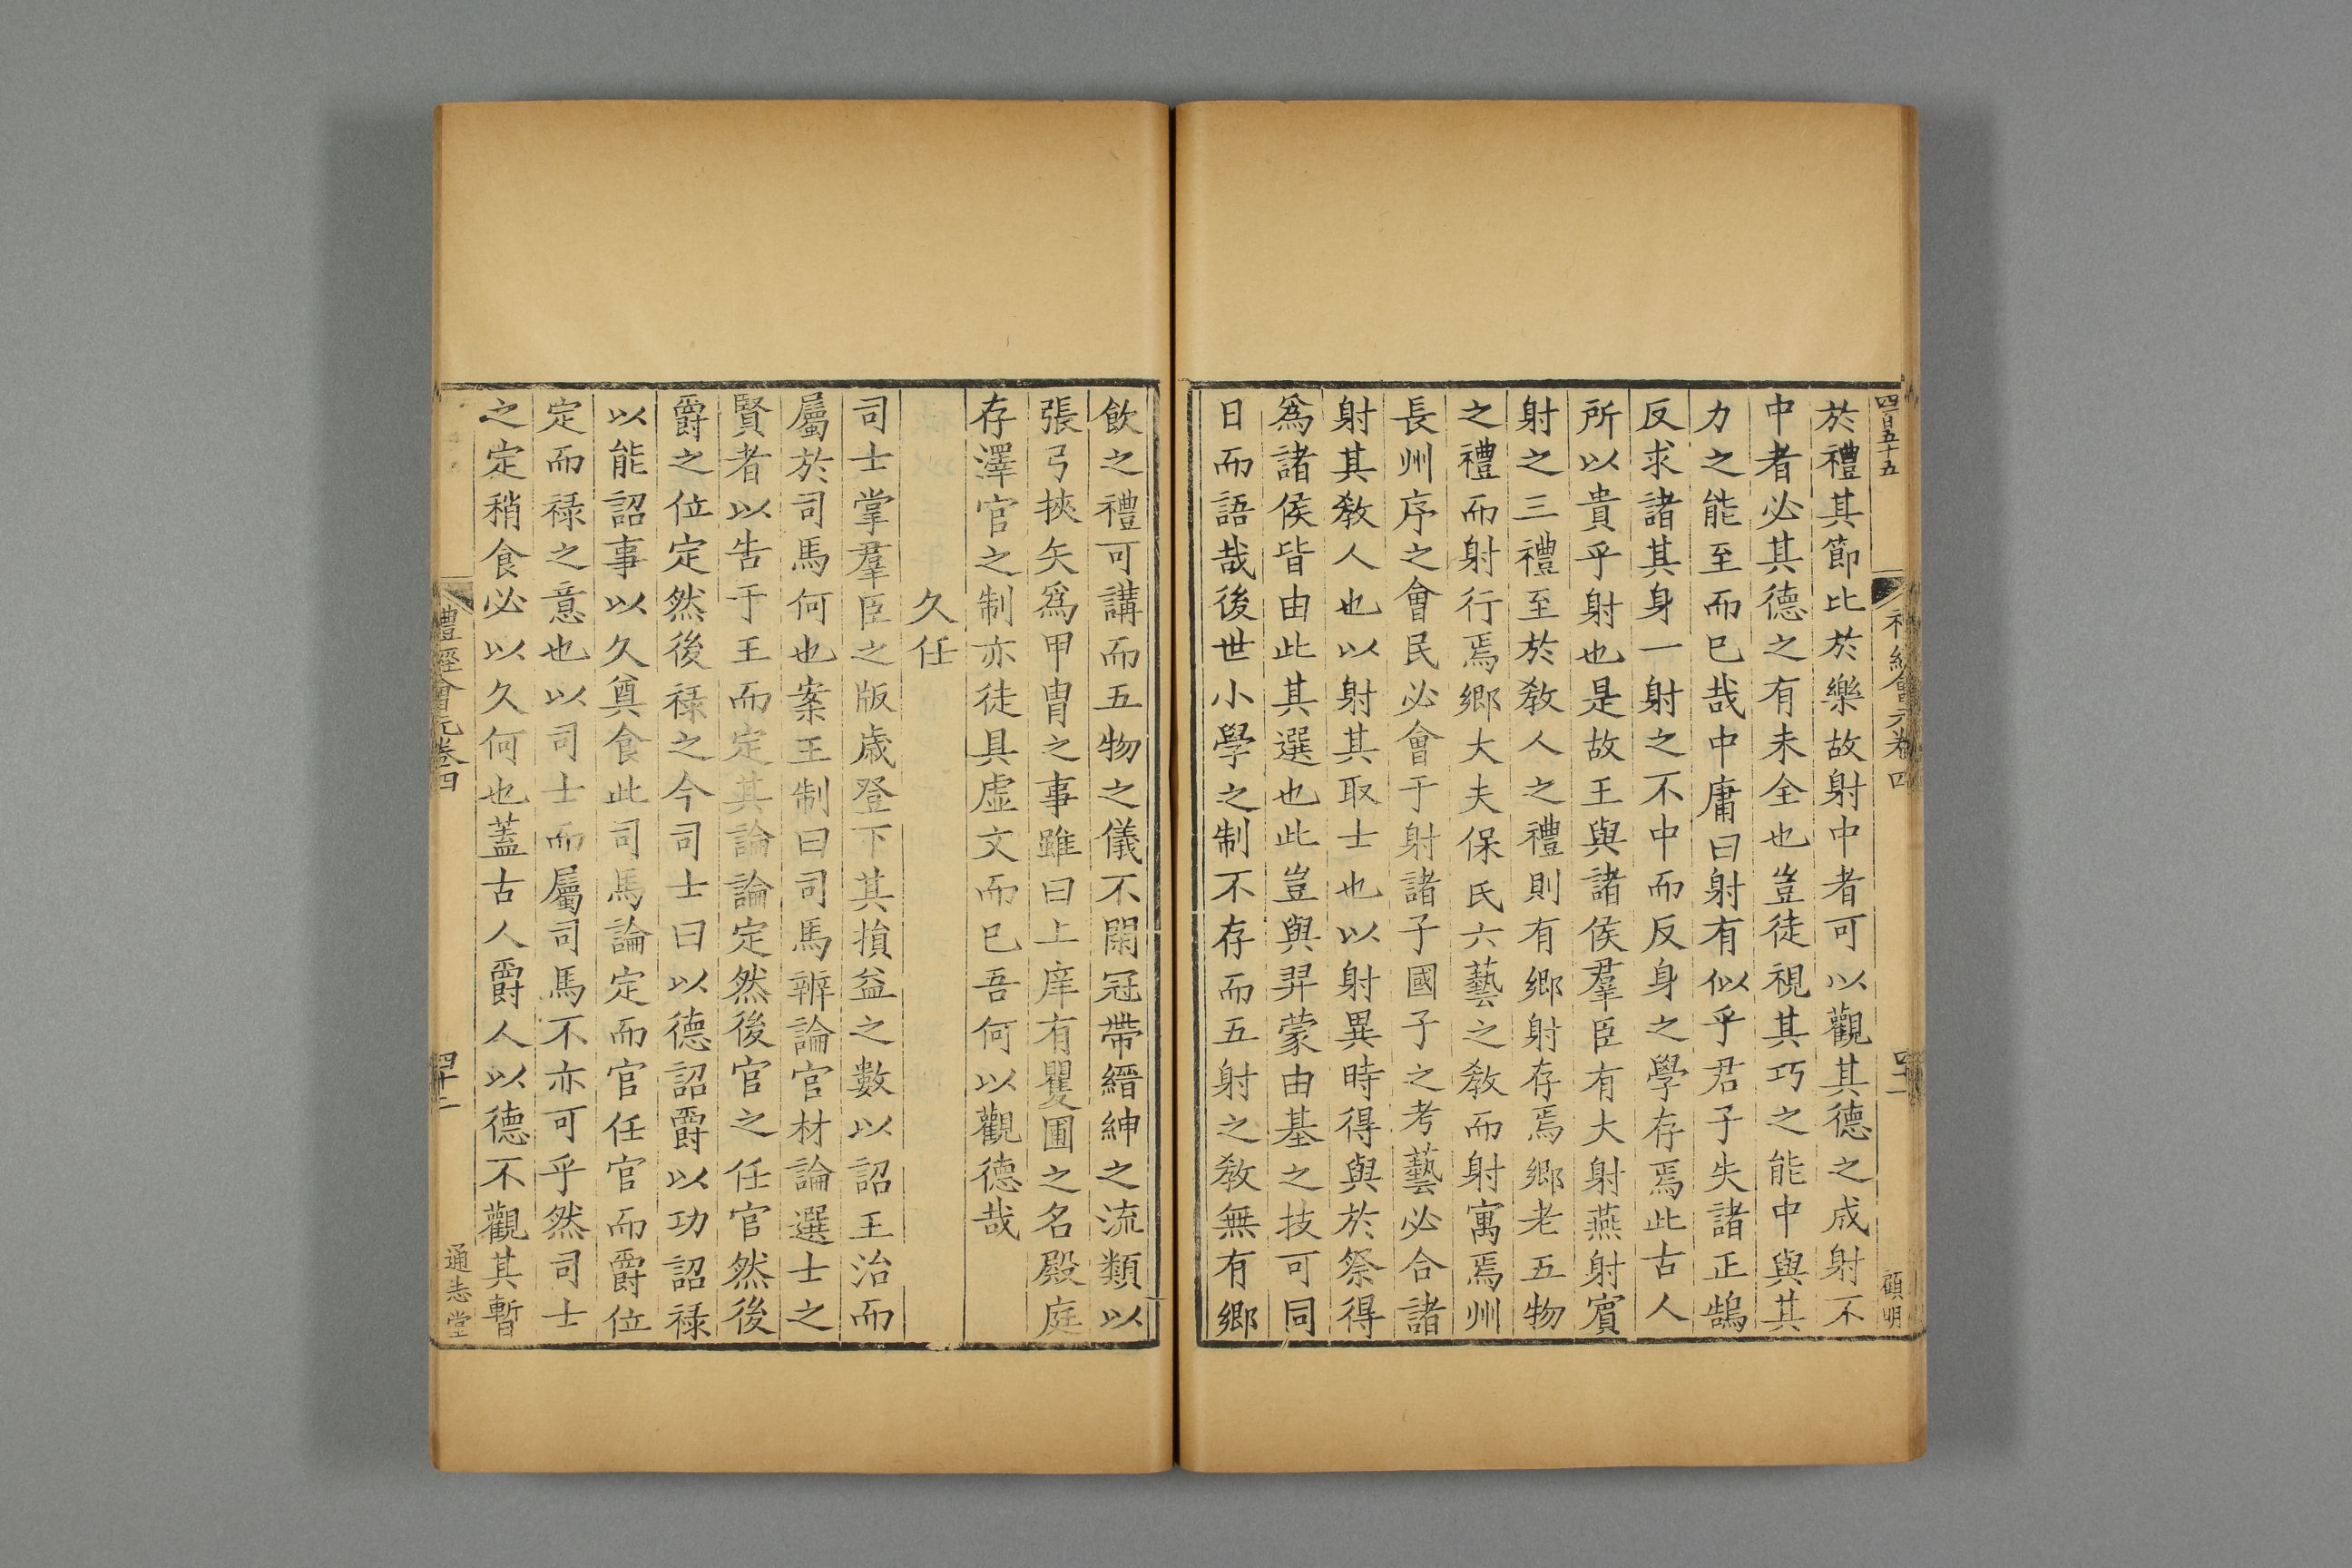 四百五十五
禮經會元卷四
顧明
於禮其節比於樂故射中者可以觀其德之成射不
中者必其德之有未全也豈徒視其巧之能中與其
力之能至而已哉中庸曰射有似乎君子失諸正鵠
反求諸其身一射之不中而反身之學存焉此古人
所以貴乎射也是故王與諸侯羣臣有大射燕射賓
射之三禮至於敎人之禮則有鄉射存焉鄉老五物
之禮而射行焉鄉大夫保氏六藝之敎而射寓焉州
長州序之會民必會于射諸子國子之考藝必合諸
射其敎人也以射其取士也以射異時得與於祭得
爲諸侯皆由此其選也此豈與羿蒙由基之技可同
日而語哉後世小學之制不存而五射之敎無有鄉
飲之禮可講而五物之儀不閑冠帶縉紳之流類以
張弓挾矢爲甲冑之事雖曰上庠有矍圃之名殿庭
存澤宮之制亦徒具虛文而已吾何以觀德哉
久任
司士掌羣臣之版歳登下其損益之數以詔王治而
屬於司馬何也案王制曰司馬辨論官材論選士之
賢者以告于王而定其論論定然後官之任官然後
爵之位定然後祿之今司士曰以德詔爵以功詔祿
以能詔事以久奠食此司馬論定而官任官而爵位
定而祿之意也以司士而屬司馬不亦可乎然司士
之定稍食必以久何也蓋古人爵人以德不觀其暫
禮經會元卷四
四十二
通志堂